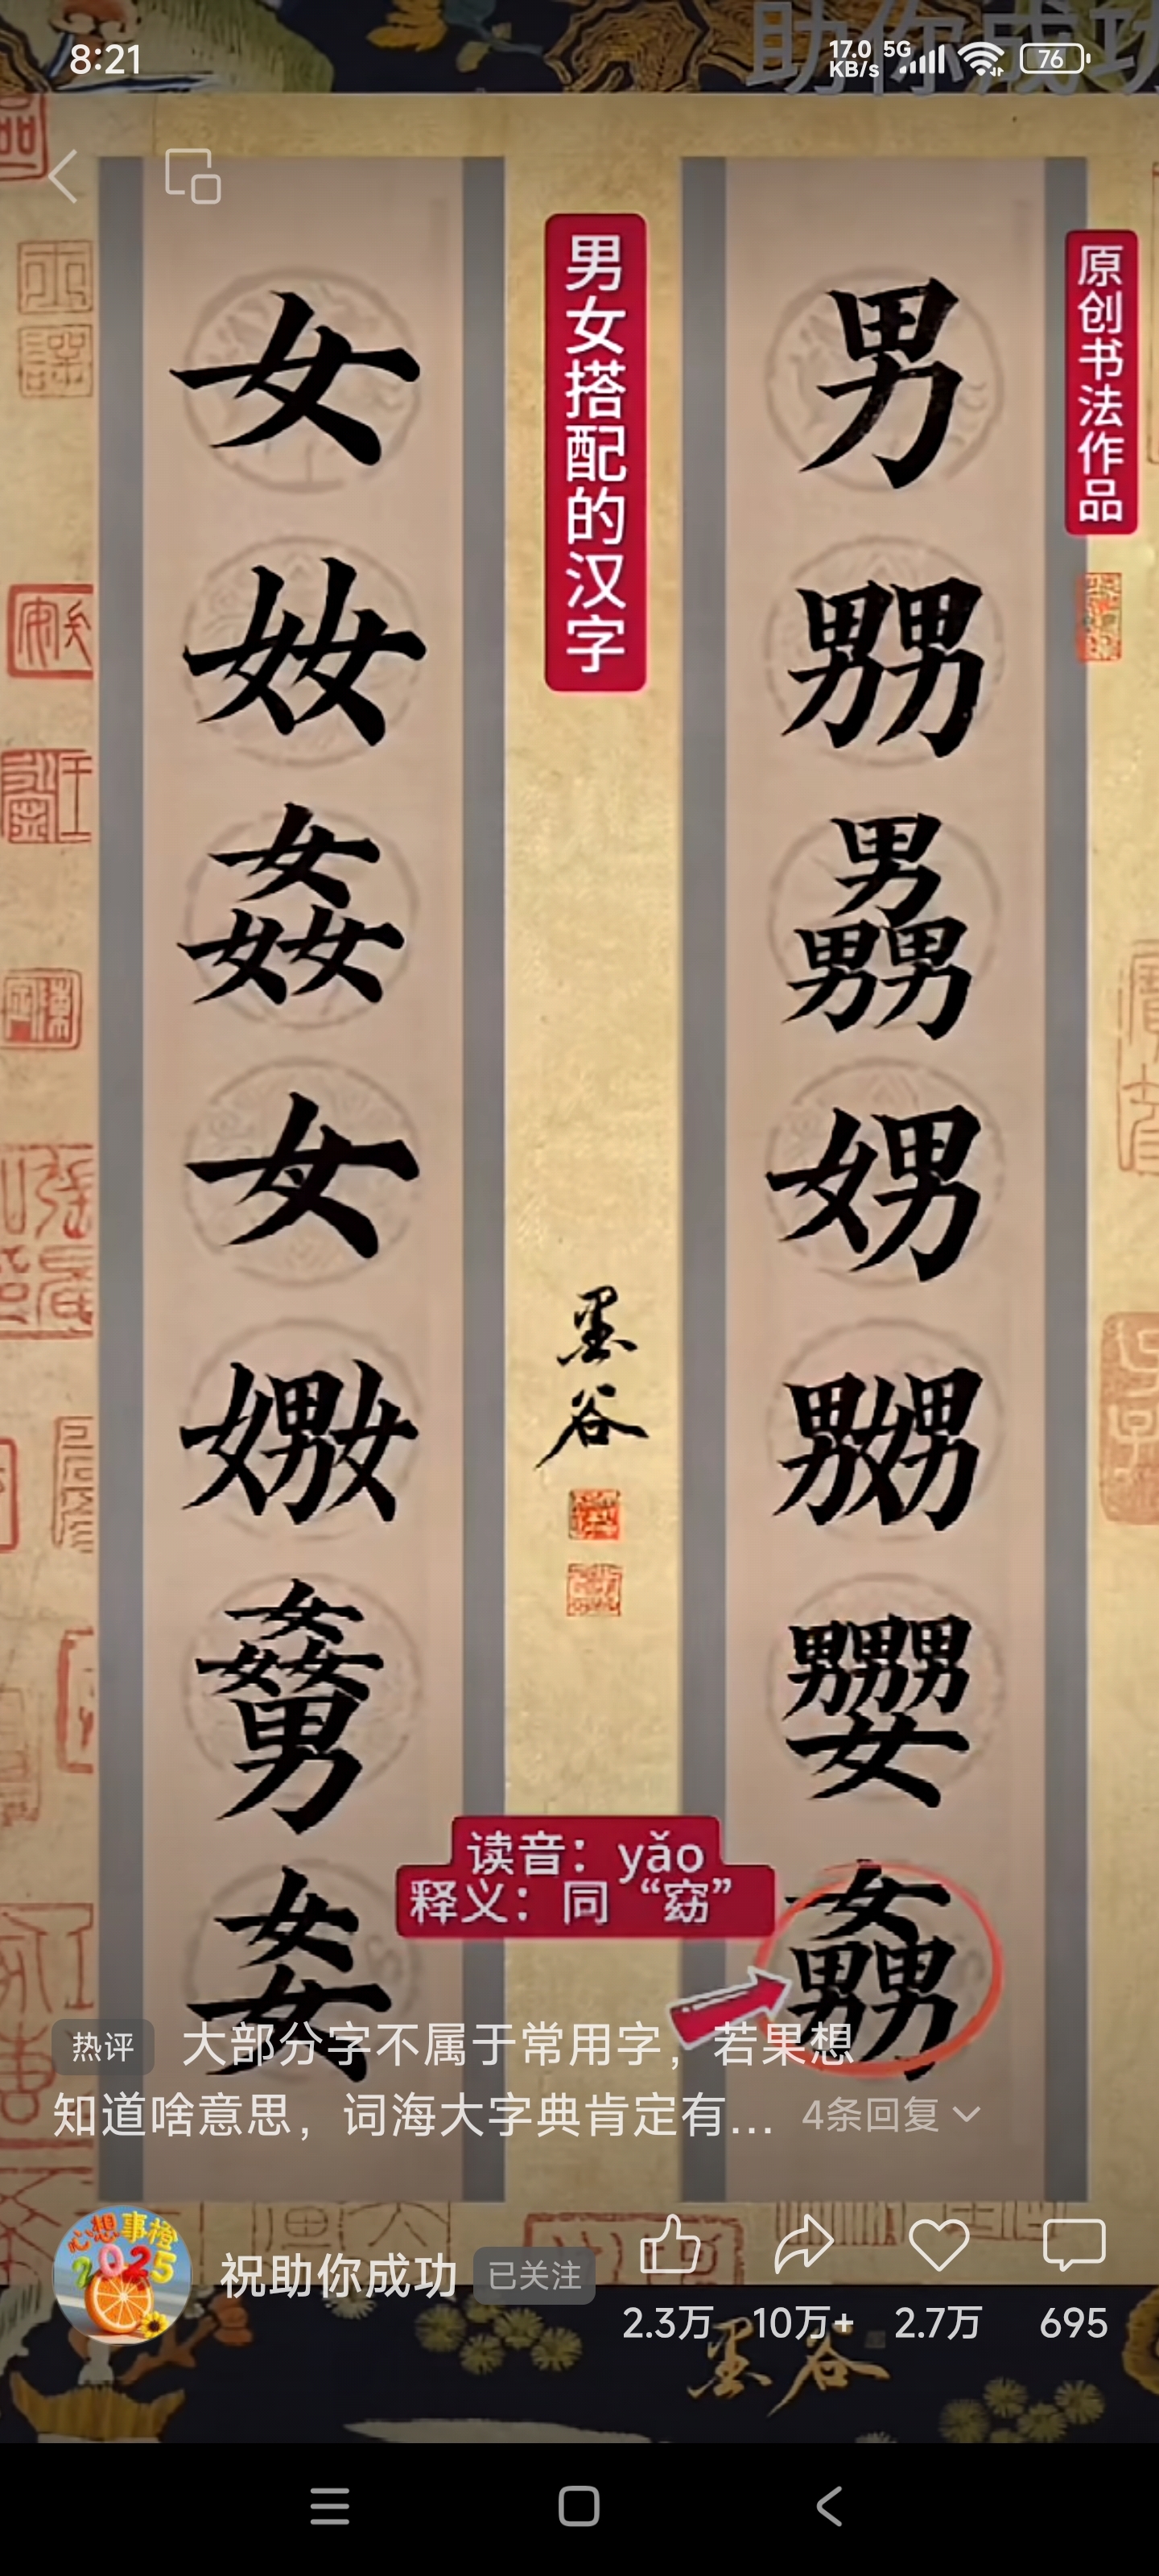 助你成功
8:21
17.0 KB/s 5G 76
原创书法作品
男
娚
嬲
男女搭配的汉字
墨谷
女
奻
姦
女
嫐
㚣
读音：yǎo
释义：同“窈”
热评 大部分字不属于常用字，若果想
知道啥意思，词海大字典肯定有... 4条回复
心想事橙
2025
祝助你成功 已关注
2.3万 10万+ 2.7万 695
墨谷